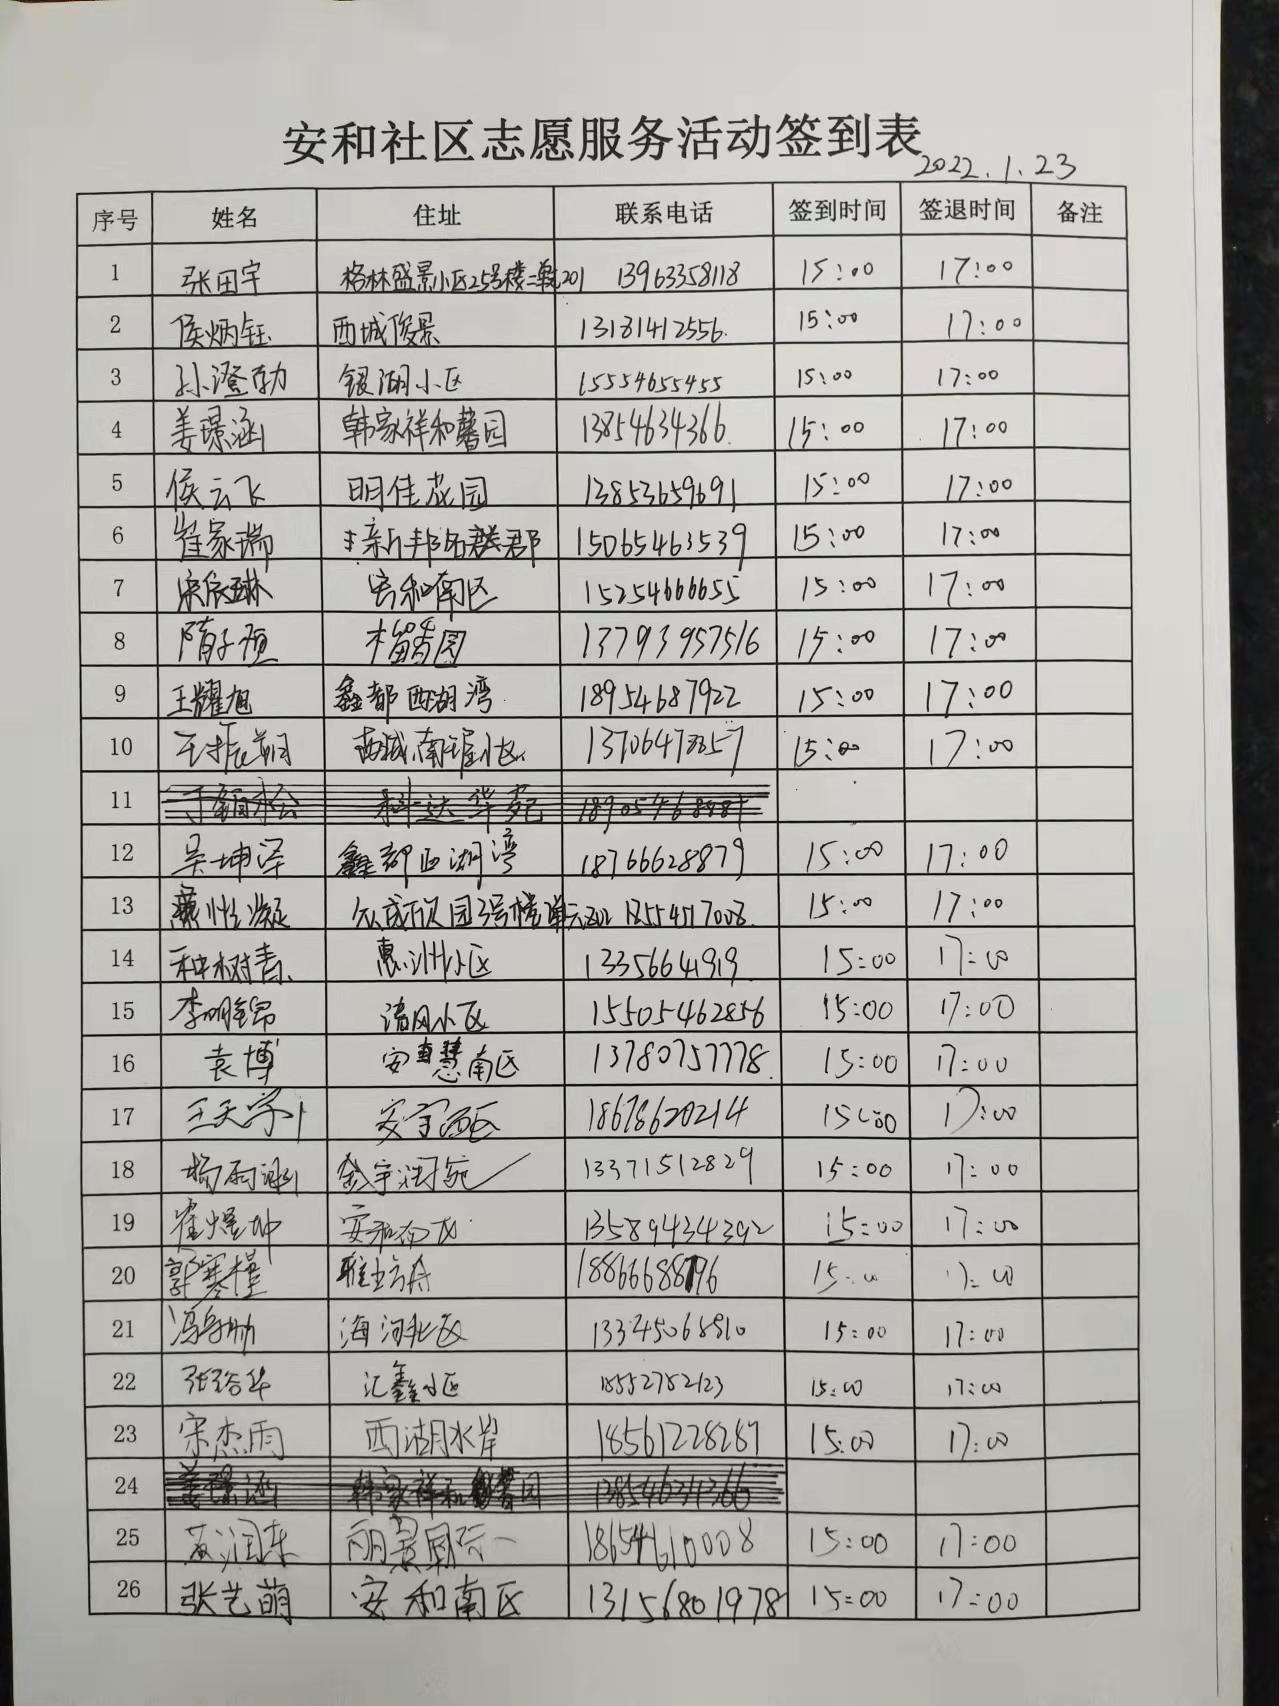 安和社区志愿服务活动签到表
2022.1.23
序号 姓名 住址 联系电话 签到时间 签退时间 备注
1 张田宇 格林盛景小区25号楼二单元201 13963358118 15:00 17:00
2 侯炳钰 西城俊景 13181412556. 15:00 17:00
3 孙澄勃 银湖小区 15554655455 15:00 17:00
4 姜璟涵 韩家祥和馨园 13854634366. 15:00 17:00
5 侯云飞 明佳花园 13853659691 15:00 17:00
6 崔家瑞 新邦名群郡 15065463539 15:00 17:00
7 宋宸琳 安和南区 15254666655 15:00 17:00
8 隋子恒 榴香园 13793957516 15:00 17:00
9 王耀旭 鑫都西湖湾 18954687922 15:00 17:00
10 王振 西城南瑾小区 15:00 17:00
11 科达华苑
12 吴坤泽 鑫都西湖湾 18766628879 15:00 17:00
13 众成欣园3号楼 15:00 17:00
14 种树青 惠州小区 13356641919. 15:00 17:00
15 李明锦 清风小区 15505462856 15:00 17:00
16 袁博 安慧南区 13780757778. 15:00 17:00
17 王天宇 安宁西区 18678620214 15:00 17:00
18 杨雨 金宇润苑 13371512829 15:00 17:00
19 崔煜坤 安和南区 13589434392 15:00 17:00
20 郭寒槿 15:00 17:00
21 冯 海河北区 13345068910 15:00 17:00
22 张 华 汇鑫小区 18552782123 15:00 17:00
23 宋杰雨 西湖水岸 18561228287 15:00 17:00
24 姜璟涵 韩家祥和馨园 13854634366
25 润东 丽景国际 18654610008 15:00 17:00
26 张艺萌 安和南区 13156801978 15:00 17:00